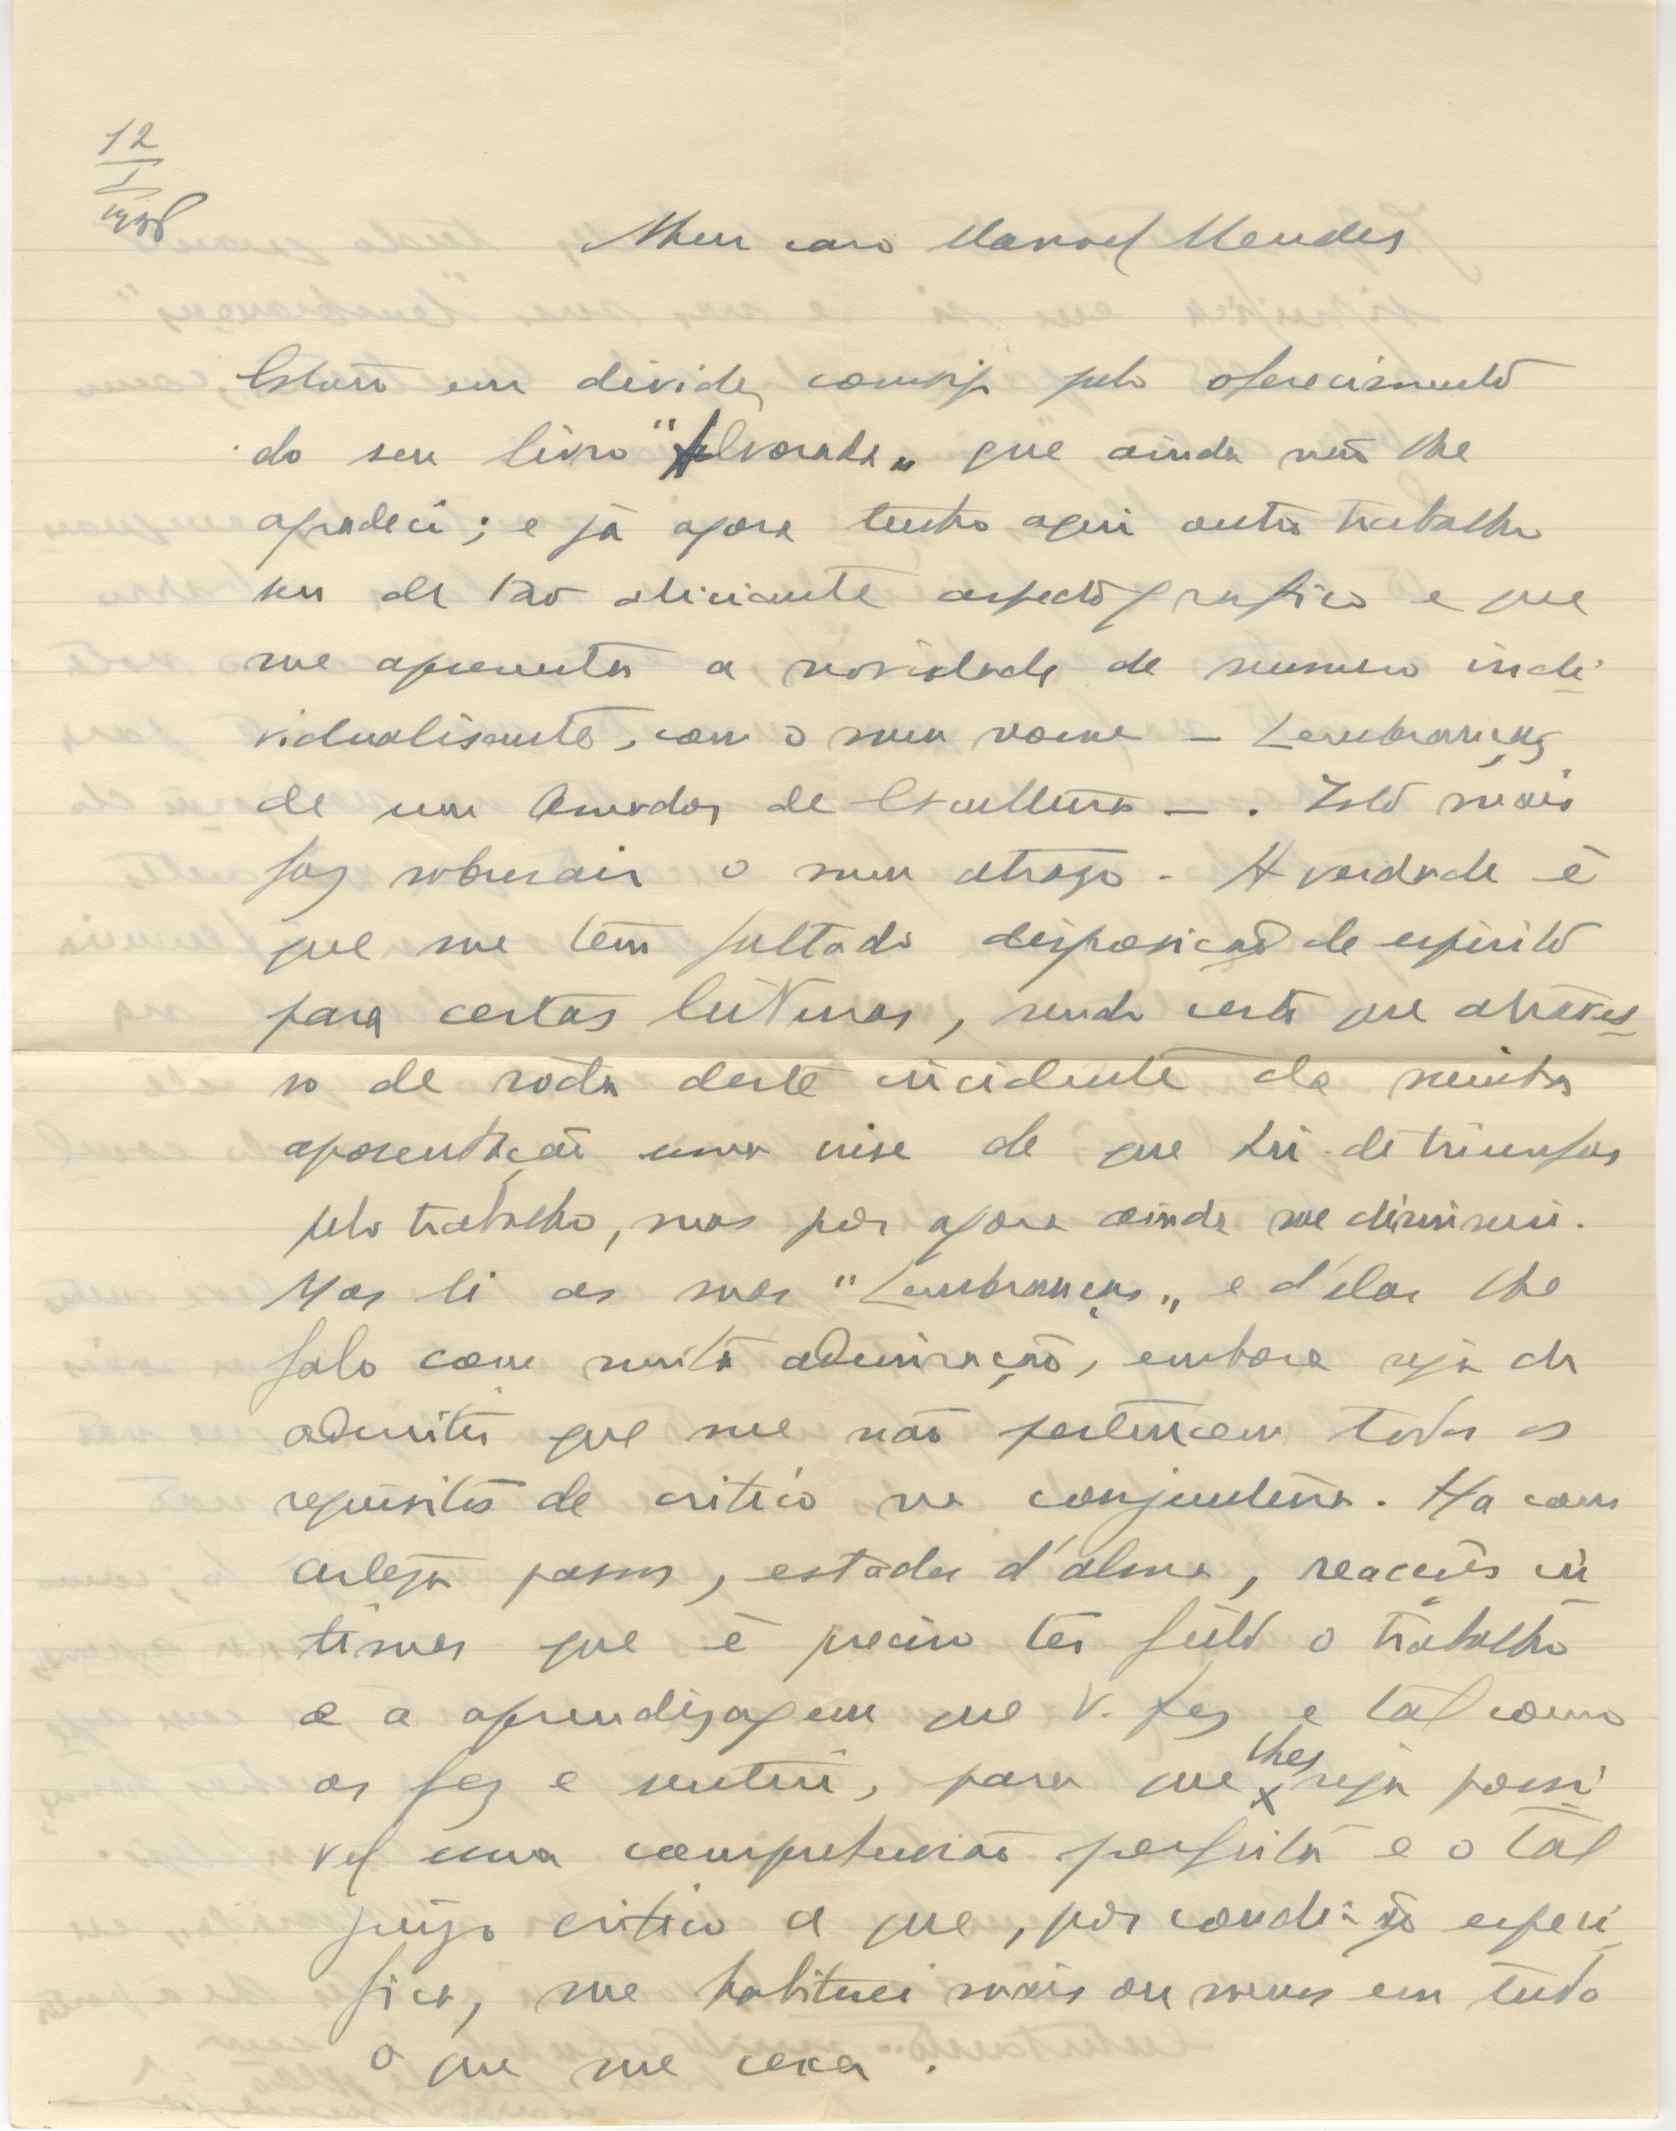 12
I
Meu caro Manoel Mendes
Estava em divida comsigo pelo oferecimento
do seu livro "Alvorada" que ainda não lhe
agradeci; e já agora tenho aqui outro trabalho
seu de tão aliciante aspecto grafico e que
me apresenta a novidade de numero indi-
vidualisante, com o meu nome – Lembranças
de um Amador de Escultura – . Isto mais
faz sobresair o meu atrazo. A verdade é
que me tem faltado disposição de espirito
para certas leituras, sendo certo que atraves-
so de roda deste incidente da minha
aposentação uma crise de que hei-de triunfar
pelo trabalho, mas por agora ainda me diminui.
Mas li as suas "Lembranças" e d'elas lhe
falo com muita admiração, embora seja de
admitir que me não pertencem todos os
requisitos de critico na conjuntura. Ha com
certeza passos, estados d'alma, reacções in
timas que é preciso ter feito o trabalho
e a aprendizagem que V. fez e tal como
os fez e sentiu, para que lhes seja possi-
vel uma comprehensão perfeita e o tal
juizo critico a que, por condição especi-
fica, me habituei mais ou menos em tudo
o que me cerca.